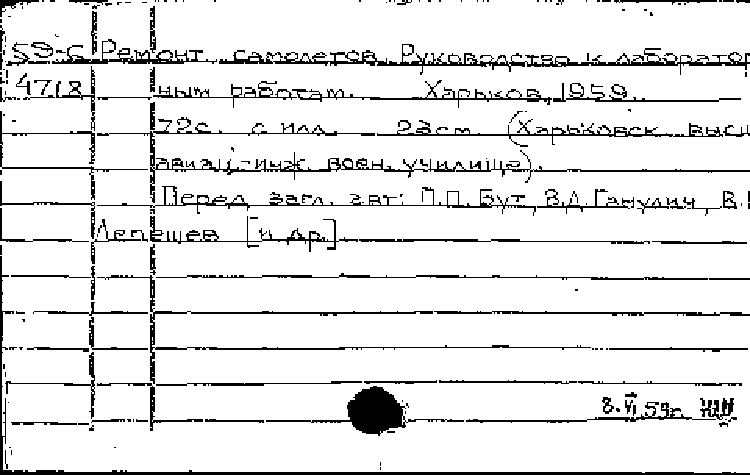 59-6 Ремонт самолетов. Руководство к лаборатор
4718 ным работам. Харьков, 1959.
72с. с илл. 23см. (Харьковск. высш
авиац.-инж. воен. училище).
Перед загл. авт: П.П. Бут, В.Д. Ганулич, В.
Лепешев [и др.]
8.VI.59г.